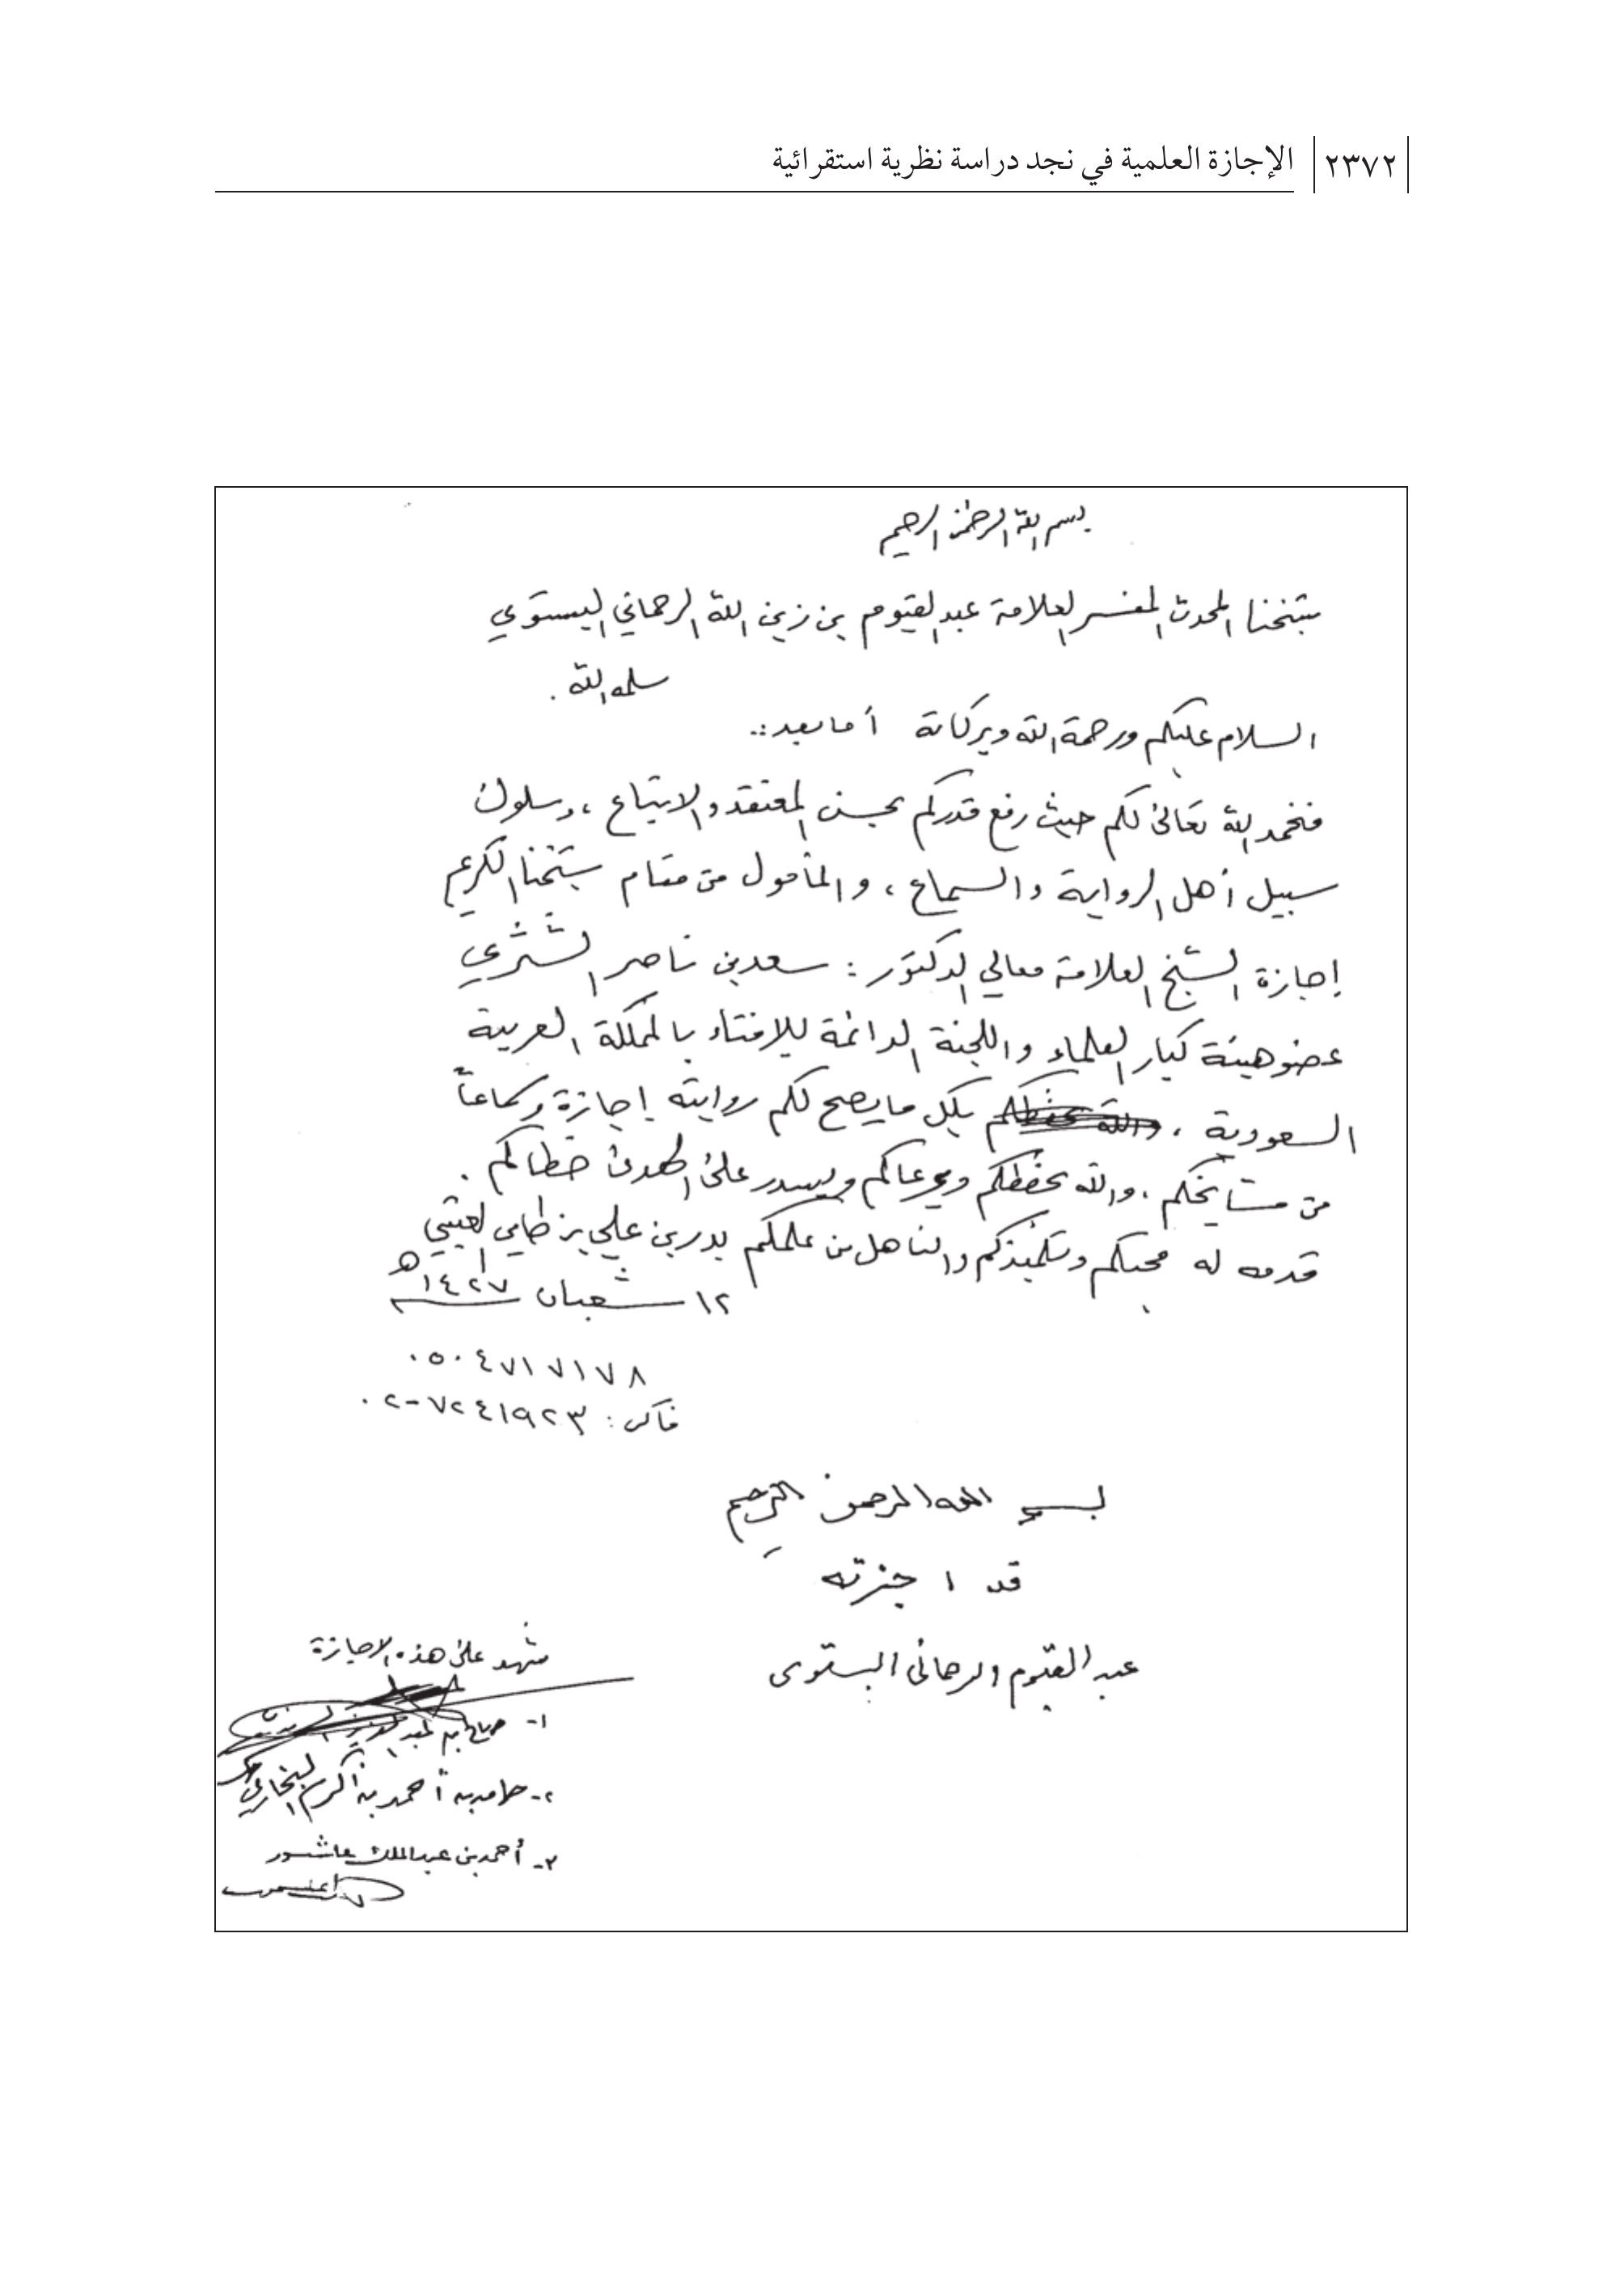 ٢٣٧٢ الإجازة العلمية في نجد دراسة نظرية استقرائية
بسم الله الرحمن الرحيم
شيخنا المحدث المفسر العلامة عبدالقيوم بن زين الله الرحماني البستوي
سلمه الله .
السلام عليكم ورحمة الله وبركاته أما بعد :..
فنحمد الله تعالى لكم حيث رفع قدركم بحسن المعتقد والاتباع ، وسلوك
سبيل أهل الرواية والسماع ، والمأمول من مقام شيخنا الكريم
إجازة الشيخ العلامة معالي الدكتور : سعد بن ناصر الشثري
عضو هيئة كبار العلماء واللجنة الدائمة للإفتاء بالمملكة العربية
السعودية ، والله يحفظكم بكل ما يصح لكم روايته إجازة وسماعاً
من مشايخكم ، والله يحفظكم ويرعاكم ويسدد على الهدى خطاكم .
قدمه له محبكم وتلميذكم والناهل من علمكم بدر بن علي بن طامي العتيبي
١٢ شعبان ١٤٢٧هـ
٠٥٠٤٧١٧١٧٨
فاكس : ٠٢-٧٢٤١٩٢٣
بسم الله الرحمن الرحيم
قد اجزته
عبد القيوم الرحمانى البستوى
شهد على هذه الإجازة
١- صالح بن عبدالعزيز
٢- حامد بن أحمد بن أكرم البخاري
٣- أحمد بن عبدالملك عاشور